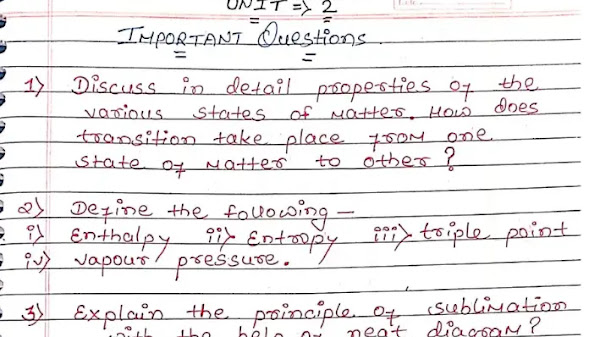 UNIT => 2
IMPORTANT Questions
1) Discuss in detail properties of the
various states of matter. How does
transition take place from one
state of matter to other ?
2) Define the following –
i) Enthalpy ii) Entropy iii) triple point
iv) vapour pressure.
3) Explain the principle of sublimation
with the help of neat diagram?